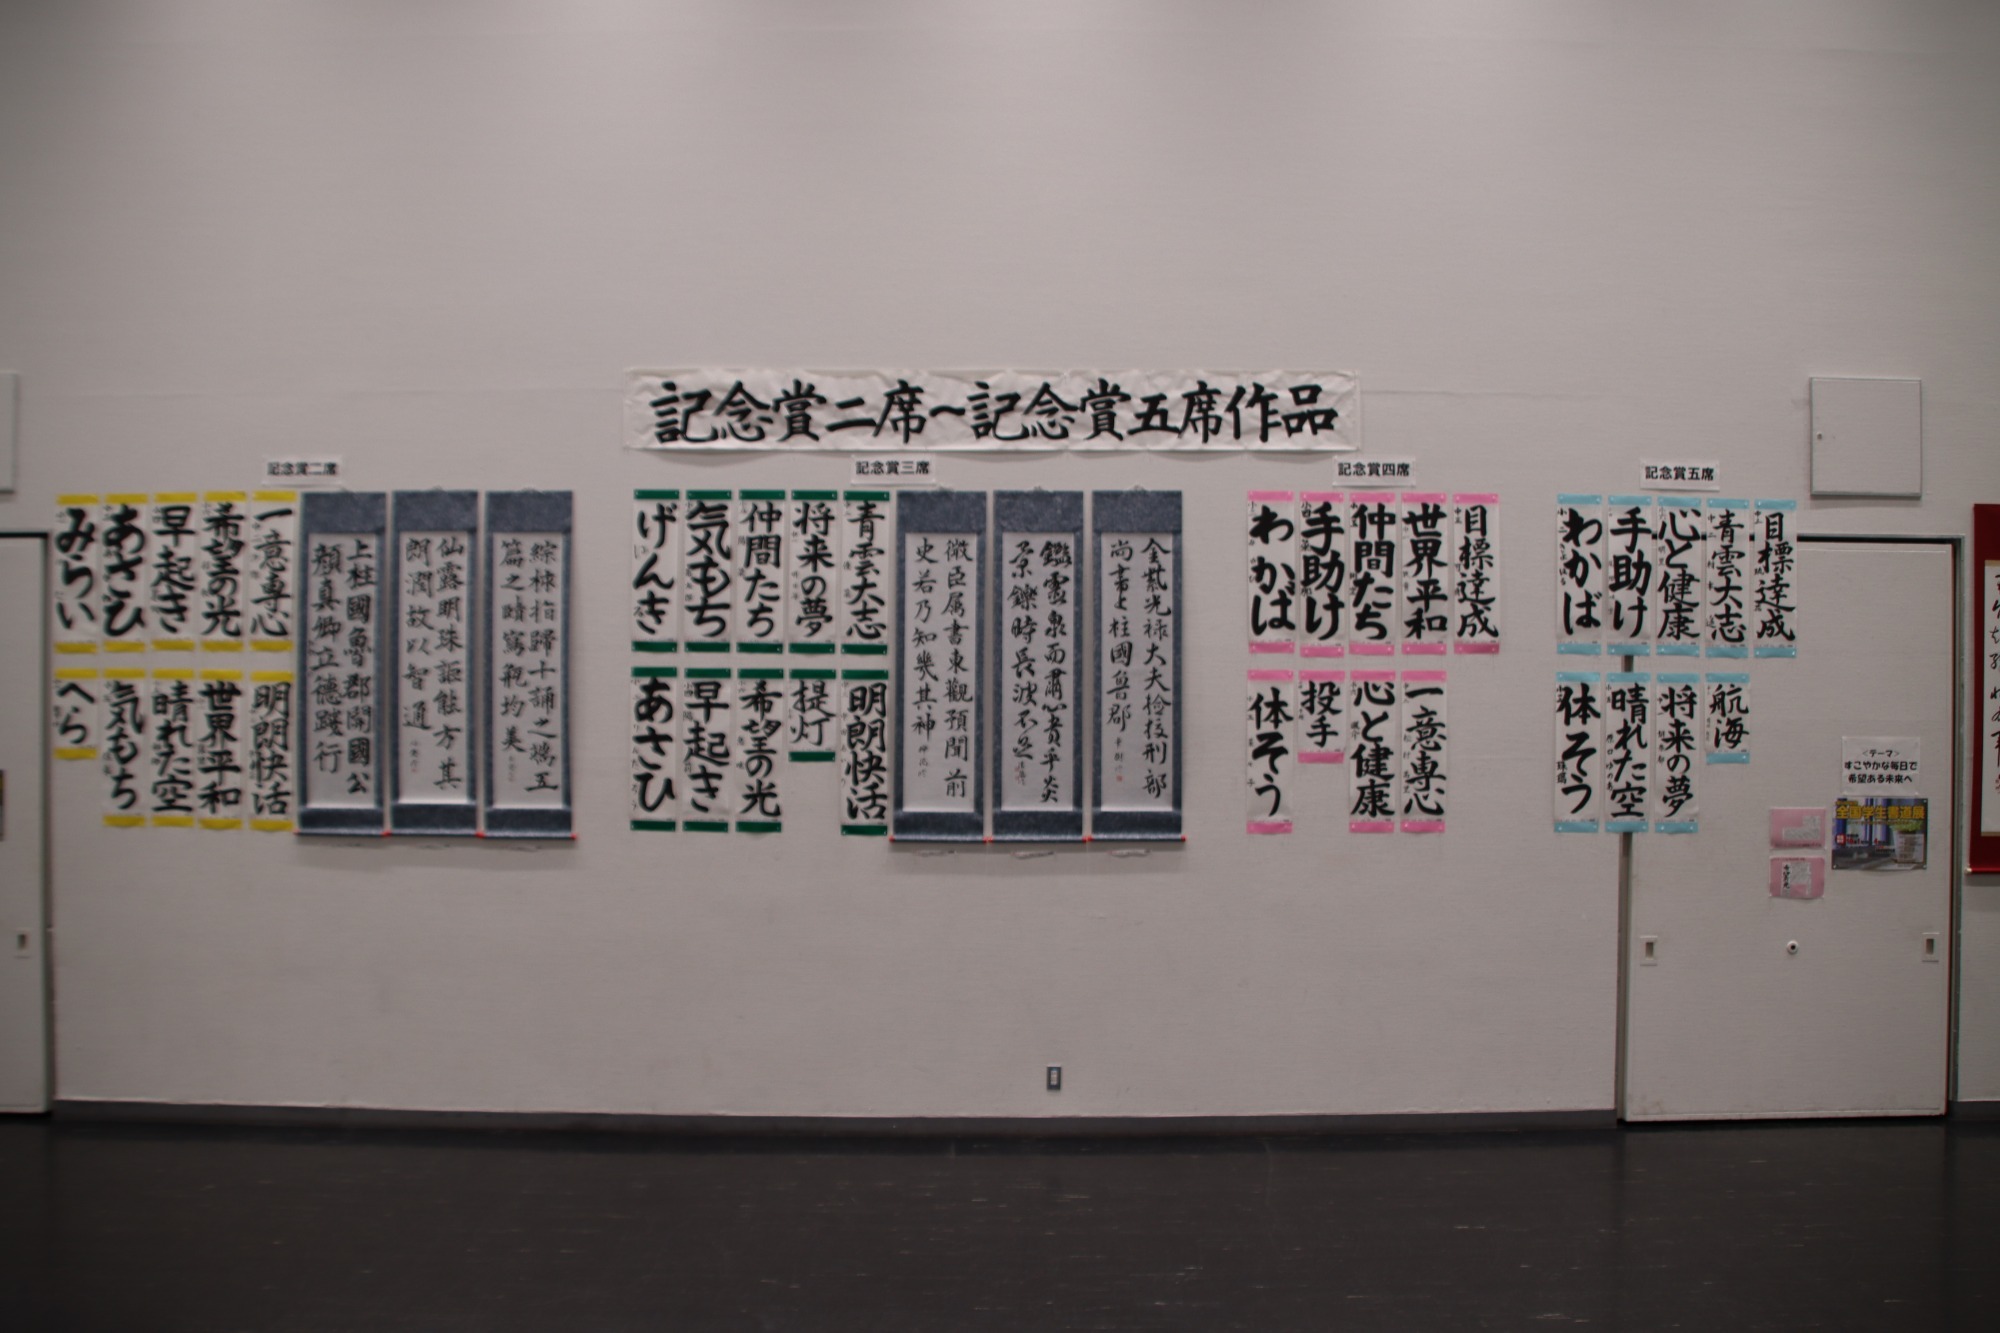 記念賞二席～記念賞五席作品
記念賞二席
一意専心
希望の光
早起き
あさひ
みらい
明朗快活
世界平和
晴れた空
気もち
へら
綜
指歸十誦之
五
篇之
美
仙露明珠詎能方其
朗潤故以智通
上柱國魯郡開國公
顔真卿立德踐行
記念賞三席
青雲大志
将来の夢
仲間たち
気もち
げんき
明朗快活
提灯
希望の光
早起き
あさひ
金紫光禄大夫檢校刑部
尚書上柱國魯郡
鑑靈泉而肅心貴乎炎
景鑠時長波不
微臣属書東觀預聞前
史若乃知幾其神
記念賞四席
目標達成
世界平和
仲間たち
手助け
わかば
一意専心
心と健康
投手
体そう
記念賞五席
目標達成
青雲大志
心と健康
手助け
わかば
航海
将来の夢
晴れた空
体そう
＜テーマ＞
すこやかな毎日で
希望ある未来へ
全国学生書道展